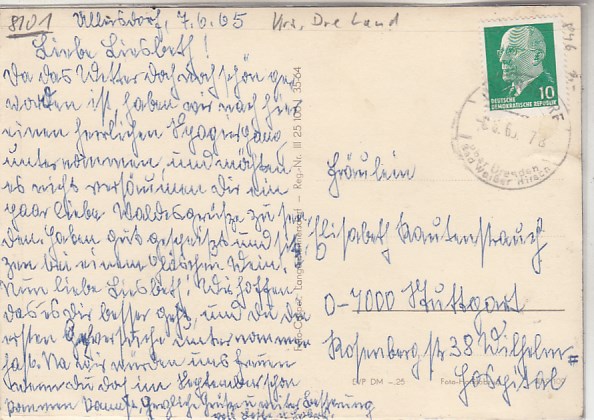 8101
Ullersdorf, 7.6.65
Liebe Liesbeth!
Da das Wetter doch noch schön ge-
worden ist, haben wir noch hier
einen herrlichen Spaziergang
unternommen, und möchten
es nicht versäumen Dir ein
paar liebe Waldesgrüße zu sen-
den. Haben gut gespeist und sit-
zen bei einem Gläschen Wein.
Nun liebe Liesbeth! Wir hoffen
das es Dir besser geht, und du die
ersten Gehversuche unternommen
hast. Na wir würden uns freuen
wenn du doch im September schon
kommen kannst. Herzliche Grüße u. weiter Besserung
Reg.-Nr. III 25 35-64
DEUTSCHE
DEMOKRATISCHE REPUBLIK
10
über Dresden
Bad Weißer Hirsch
Fräulein
Elisabeth Rautenstrauch
0-7000 Stuttgart
Rosenbergstr 38 Wilhelm-
Hospital
EVP DM -.25